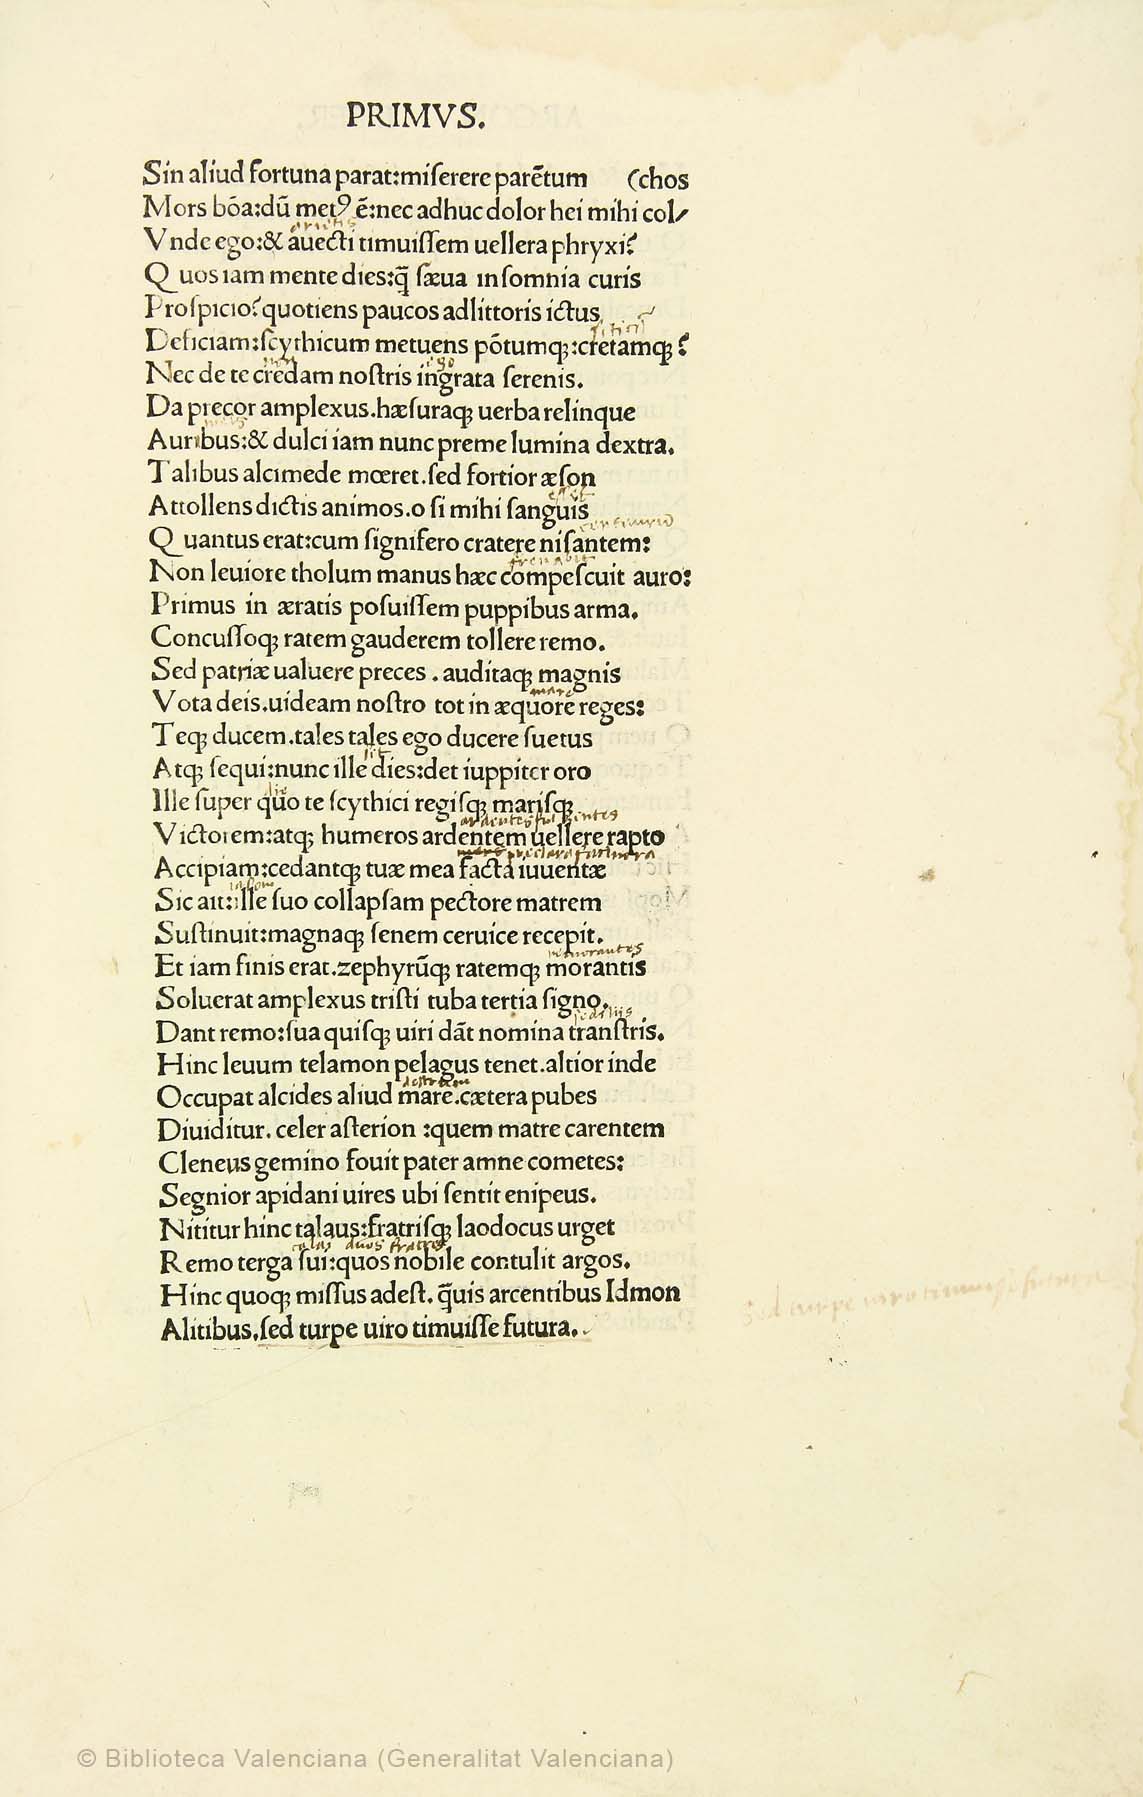 PRIMVS.
Sin aliud fortuna parat:miſerere parētum (chos
Mors bōa:dū metꝰ ē:nec adhuc dolor hei mihi col
arietis
Vnde ego:& auecti timuiſſem uellera phryxi?
Quos iam mente dies:q̄ ſæua inſomnia curis
Proſpicio?quotiens paucos adlittoris ictus
Deficiam:ſcythicum metuens pōtumq;:cretamq;?
non ego
Nec de te credam noſtris ingrata ſerenis.
Da precor amplexus.hæſuraq; uerba relinque
Auribus:& dulci iam nunc preme lumina dextra.
Talibus alcimede mœret.ſed fortior æſon
Attollens dictis animos.o ſi mihi ſanguis
eſſet
Quantus erat:cum ſignifero cratere niſantem:
frenabit
Non leuiore tholum manus hæc compeſcuit auro:
Primus in æratis poſuiſſem puppibus arma.
Concuſſoq; ratem gauderem tollere remo.
Sed patriæ ualuere preces.auditaq; magnis
mare
Vota deis.uideam noſtro tot in æquore reges:
Teq; ducem.tales tales ego ducere ſuetus
ſit
Atq; ſequi:nunc ille dies:det iuppiter oro
die
Ille ſuper quo te ſcythici regiſq; mariſq;
Victorem:atq; humeros ardentem uellere rapto
Accipiam:cedantq; tuæ mea facta iuuentæ
iaſon
Sic ait:ille ſuo collapſam pectore matrem
Suſtinuit:magnaq; ſenem ceruice recepit.
remorantes
Et iam finis erat.zephyrūq; ratemq; morantis
Soluerat amplexus triſti tuba tertia ſigno.
ſedilijs
Dant remo:ſua quiſq; uiri dāt nomina tranſtris.
Hinc leuum telamon pelagus tenet.altior inde
Occupat alcides aliud mare.cætera pubes
Diuiditur. celer aſterion :quem matre carentem
Cleneus gemino fouit pater amne cometes:
Segnior apidani uires ubi ſentit enipeus.
Nititur hinc talaus:fratriſq; laodocus urget
duos fratres
Remo terga ſui:quos nobile contulit argos.
Hinc quoq; miſſus adeſt. q̄uis arcentibus Idmon
Alitibus.ſed turpe uiro timuiſſe futura.
Sed turpe uiro timuiſſe futura
© Biblioteca Valenciana (Generalitat Valenciana)